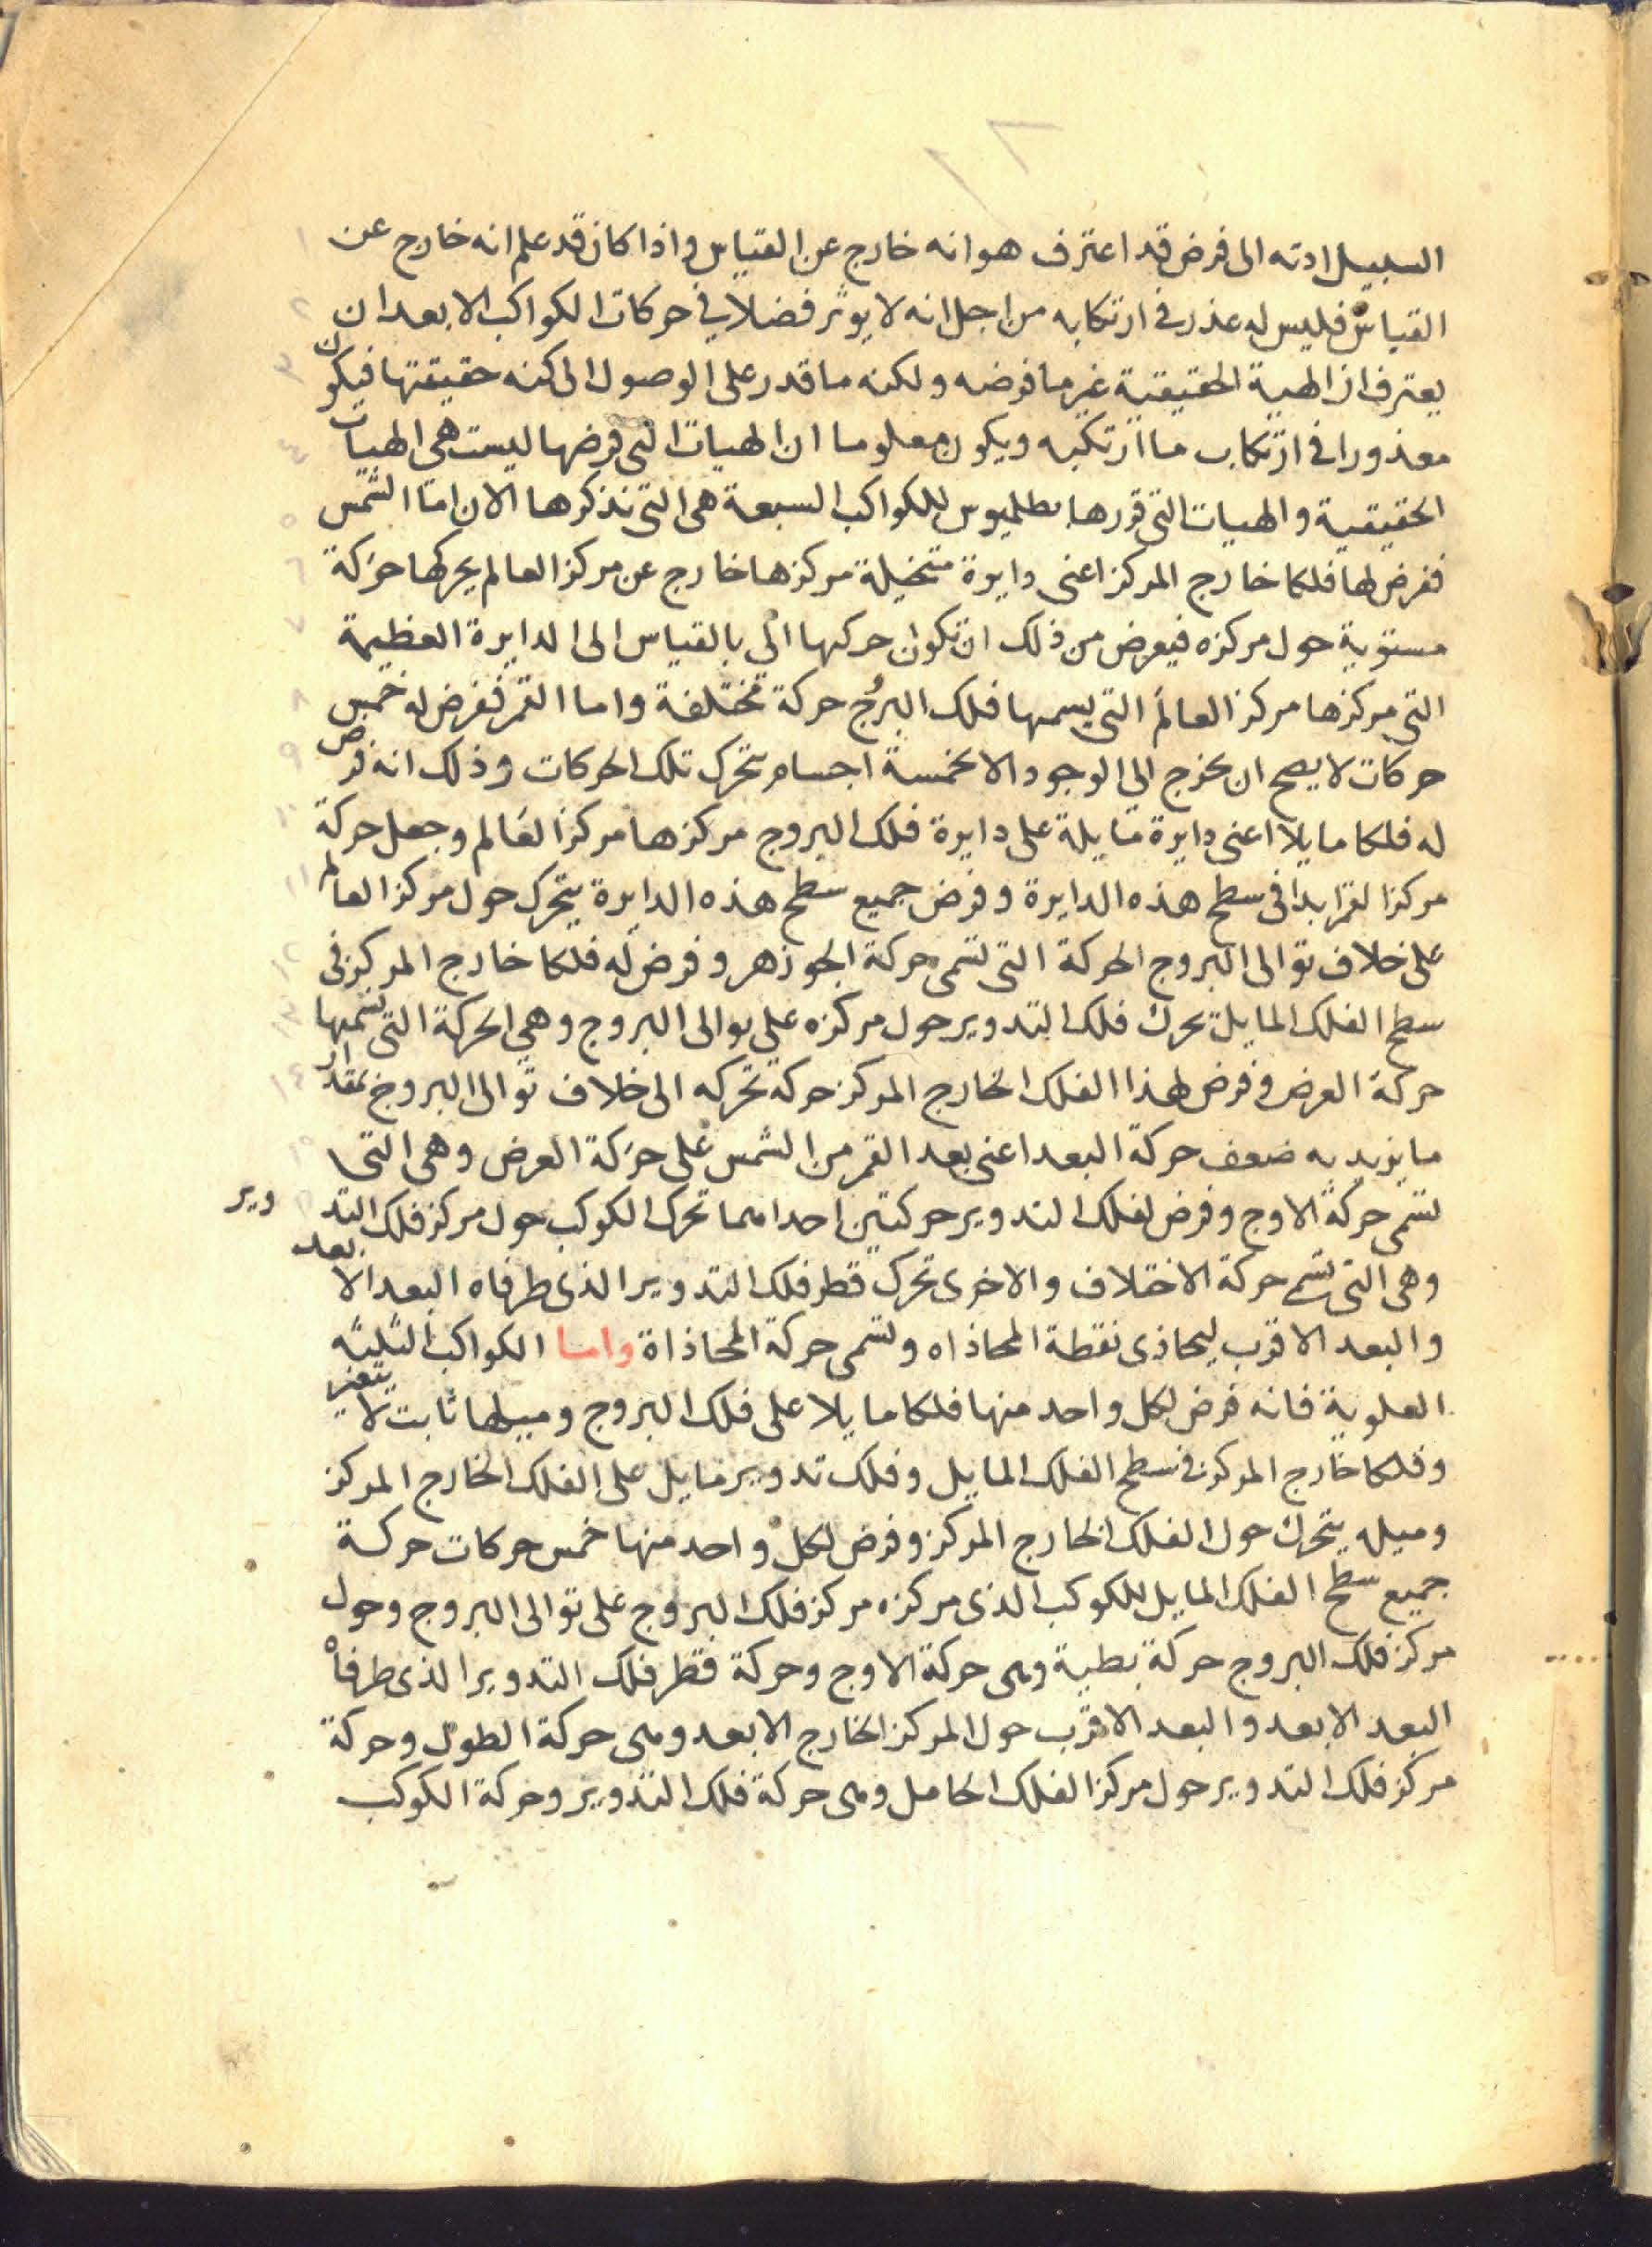 السبيل ادته الى فرض قد اعترف هو انه خارج عن القياس و اذا كان قد علم انه خارج عن
القياس فليس له عذر فى ارتكابه من اجل انه لا يوثر فضلا فى حركات الكواكب الا بعد ان
يعترف ان الهية الحقيقية غير ما فرضه ولكنه ما قدر على الوصول الى كنه حقيقتها فيكون
معذورا فى ارتكاب ما ارتكبه ويكون معلوما ان الهيات التى فرضها ليست هى الهيات
الحقيقية والهيات التى قررها بطلميوس للكواكب السبعة هى التى نذكرها الان اما الشمس
ففرض لها فلكا خارج المركز اعنى دايرة متخيلة مركزها خارج عن مركز العالم يحركها حركة
مستوية حول مركزه فيعرض من ذلك ان تكون حركتها التى بالقياس الى الدايرة العظيمة
التى مركزها مركز العالم التى يسمها فلك البرج حركة مختلفة واما القمر ففرض له خمس
حركات لا يصح ان يخرج الى الوجود الا بخمسة اجسام يتحرك تلك الحركات وذلك انه فرض
له فلكا مايلا اعنى دايرة مايلة على دايرة فلك البروج مركزها مركز العالم وجعل حركة
مركز القمر ابدا فى سطح هذه الدايرة وفرض جميع سطح هذه الدايرة يتحرك حول مركز العالم
على خلاف توالى البروج الحركة التى تسمى حركة الجوزهر وفرض له فلكا خارج المركز فى
سطح الفلك المايل تحرك فلك التدوير حول مركزه على توالى البروج وهى الحركة التى تسمها
حركة العرض وفرض لهذا الفلك الخارج المركز حركة تحركه الى خلاف توالى البروج بمقدار
ما يزيد به ضعف حركة البعد اعنى بعد القمر من الشمس على حركة العرض وهى التى
تسمى حركة الاوج وفرض لفلك التدوير حركتين احداهما تحرك الكوكب حول مركز فلك التدوير
وهى التى تسمى حركة الاختلاف والاخرى تحرك قطر فلك التدوير الذى طرفاه البعد الابعد
والبعد الاقرب ليحاذى نقطة المحاذاه وتسمى حركة المحاذاة واما الكواكب الثلثه
العلوية فانه فرض لكل واحد منها فلكا مايلا على فلك البروج وميلها ثابت لا يتغير
وفلكا خارج المركز فى سطح الفلك المايل وفلك تدوير مايل على الفلك الخارج المركز
وميله يتحرك حول الفلك الخارج المركز وفرض لكل واحد منها خمس حركات حركة
جميع سطح الفلك المايل للكوكب الذى مركزه مركز فلك البروج على توالى البروج وحول
مركز فلك البروج حركة بطية وهى حركة الاوج وحركة قطر فلك التدوير الذى طرفاه
البعد الابعد والبعد الاقرب حول المركز الخارج الابعد وهى حركة الطول وحركة
مركز فلك التدوير حول مركز الفلك الحامل وهى حركة فلك التدوير وحركة الكوكب